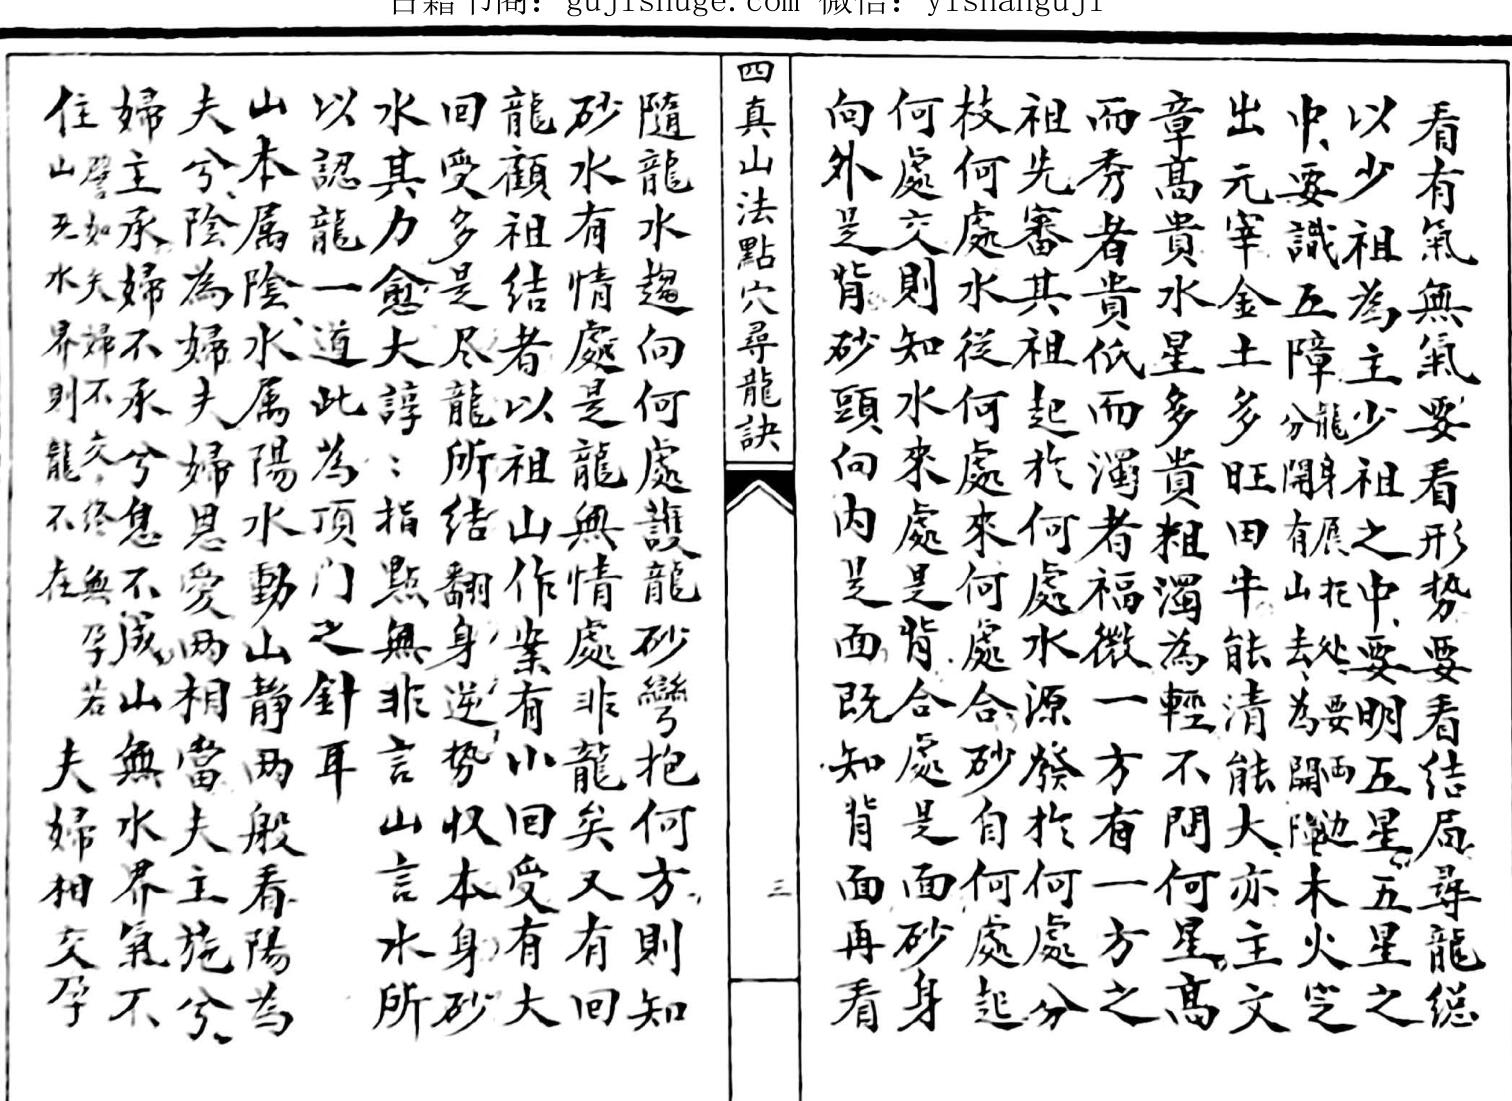 古籍书阁：gujishuge.com 微信：yishanguji
看有氣無氣要看形势要看结局尋龍縂
以少祖為主少祖之中要明五星五星之
中要識五障龍身展抱处要两边
分開有山去為開障木火笁
出元宰金土多旺田牛能清能大亦主文
章高貴水星多貴粗濁為輕不問何星高
而秀者貴低而濁者福微一方有一方之
祖先審其祖起於何處水源發於何處分
枝何處水從何處來何處合砂自何處起
何處交則知水來處是背合處是面砂身
向外是背砂頭向内是面既知背面再看
四真山法點穴尋龍訣
三
隨龍水趨向何處護龍砂彎抱何方則知
砂水有情處是龍無情處非龍矣又有回
龍顧祖结者以祖山作案有小回受有大
回受多是尽龍所结翻身逆势収本身砂
水其力愈大諄：指點無非言山言水所
以認龍一道此為頂门之針耳
山本属陰水属陽水動山静两般看陽為
夫兮陰為婦夫婦恩愛两相當夫主施兮
婦主承婦不承兮息不成山無水界氣不
住譬如夫婦不交终無孕若
山无水界則龍不在
夫婦相交孕